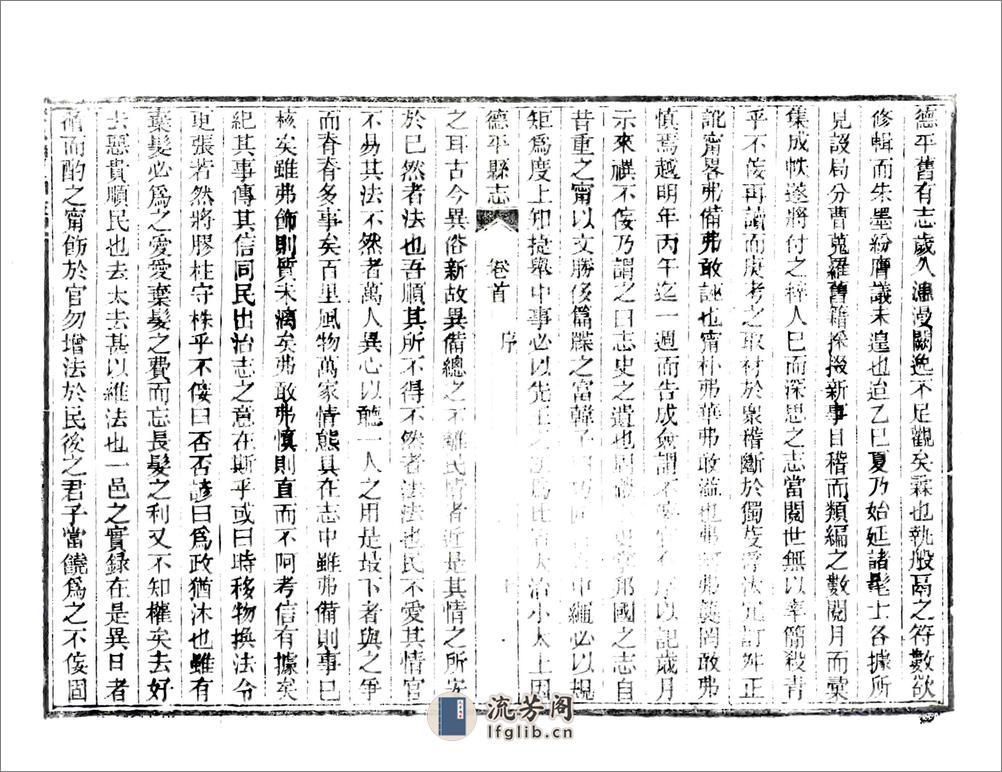 德平舊有志歲久漶漫闕逸不足觀矣霖也執般鬲之符數欲
修輯而朱墨紛膺議未遑也迨乙巳夏乃始延諸髦士各據所
見設局分曹蒐羅舊籍採掇新事目稽而類編之數閱月而稾
集成帙遂將付之梓人已而深思之志當閱世無以率簡殺青
乎不佞再讀而庚考之取材於衆稽斷於獨
訛甯畧弗備弗敢誣也甯朴弗華弗敢溢也弗
慎焉越明年丙午迄一週而告成僉謂不
示來禩不佞乃謂之曰志史之遺也
昔重之甯以文勝侈篇牒之富韓子
矩為度上知捷舉中事必以先王之
德平縣志 卷首 序
之耳古今異俗新故異備總之不離民情者近是其情之所安
於已然者法也吾順其所不得不然者法法也民不愛其情官
不易其法不然者萬人異心以聽一人之用是最下者與之爭
而脊脊多事矣百里風物萬家情態具在志中雖弗備則事已
核矣雖弗飾則質未漓矣弗敢弗慎則直而不阿考信有據矣
紀其事傳其信同民出治志之意在斯乎或曰時移物換法令
更張若然將膠柱守株乎不佞曰否否諺曰為政猶沐也雖有
棄髮必為之愛愛棄髮之費而忘長髮之利又不知權矣去好
去惡貴順民也去太去甚以維法也一邑之實録在是異日者
循而酌之甯飭於官勿增法於民後之君子當饒為之不佞固
流芳阁
lfglib.cn